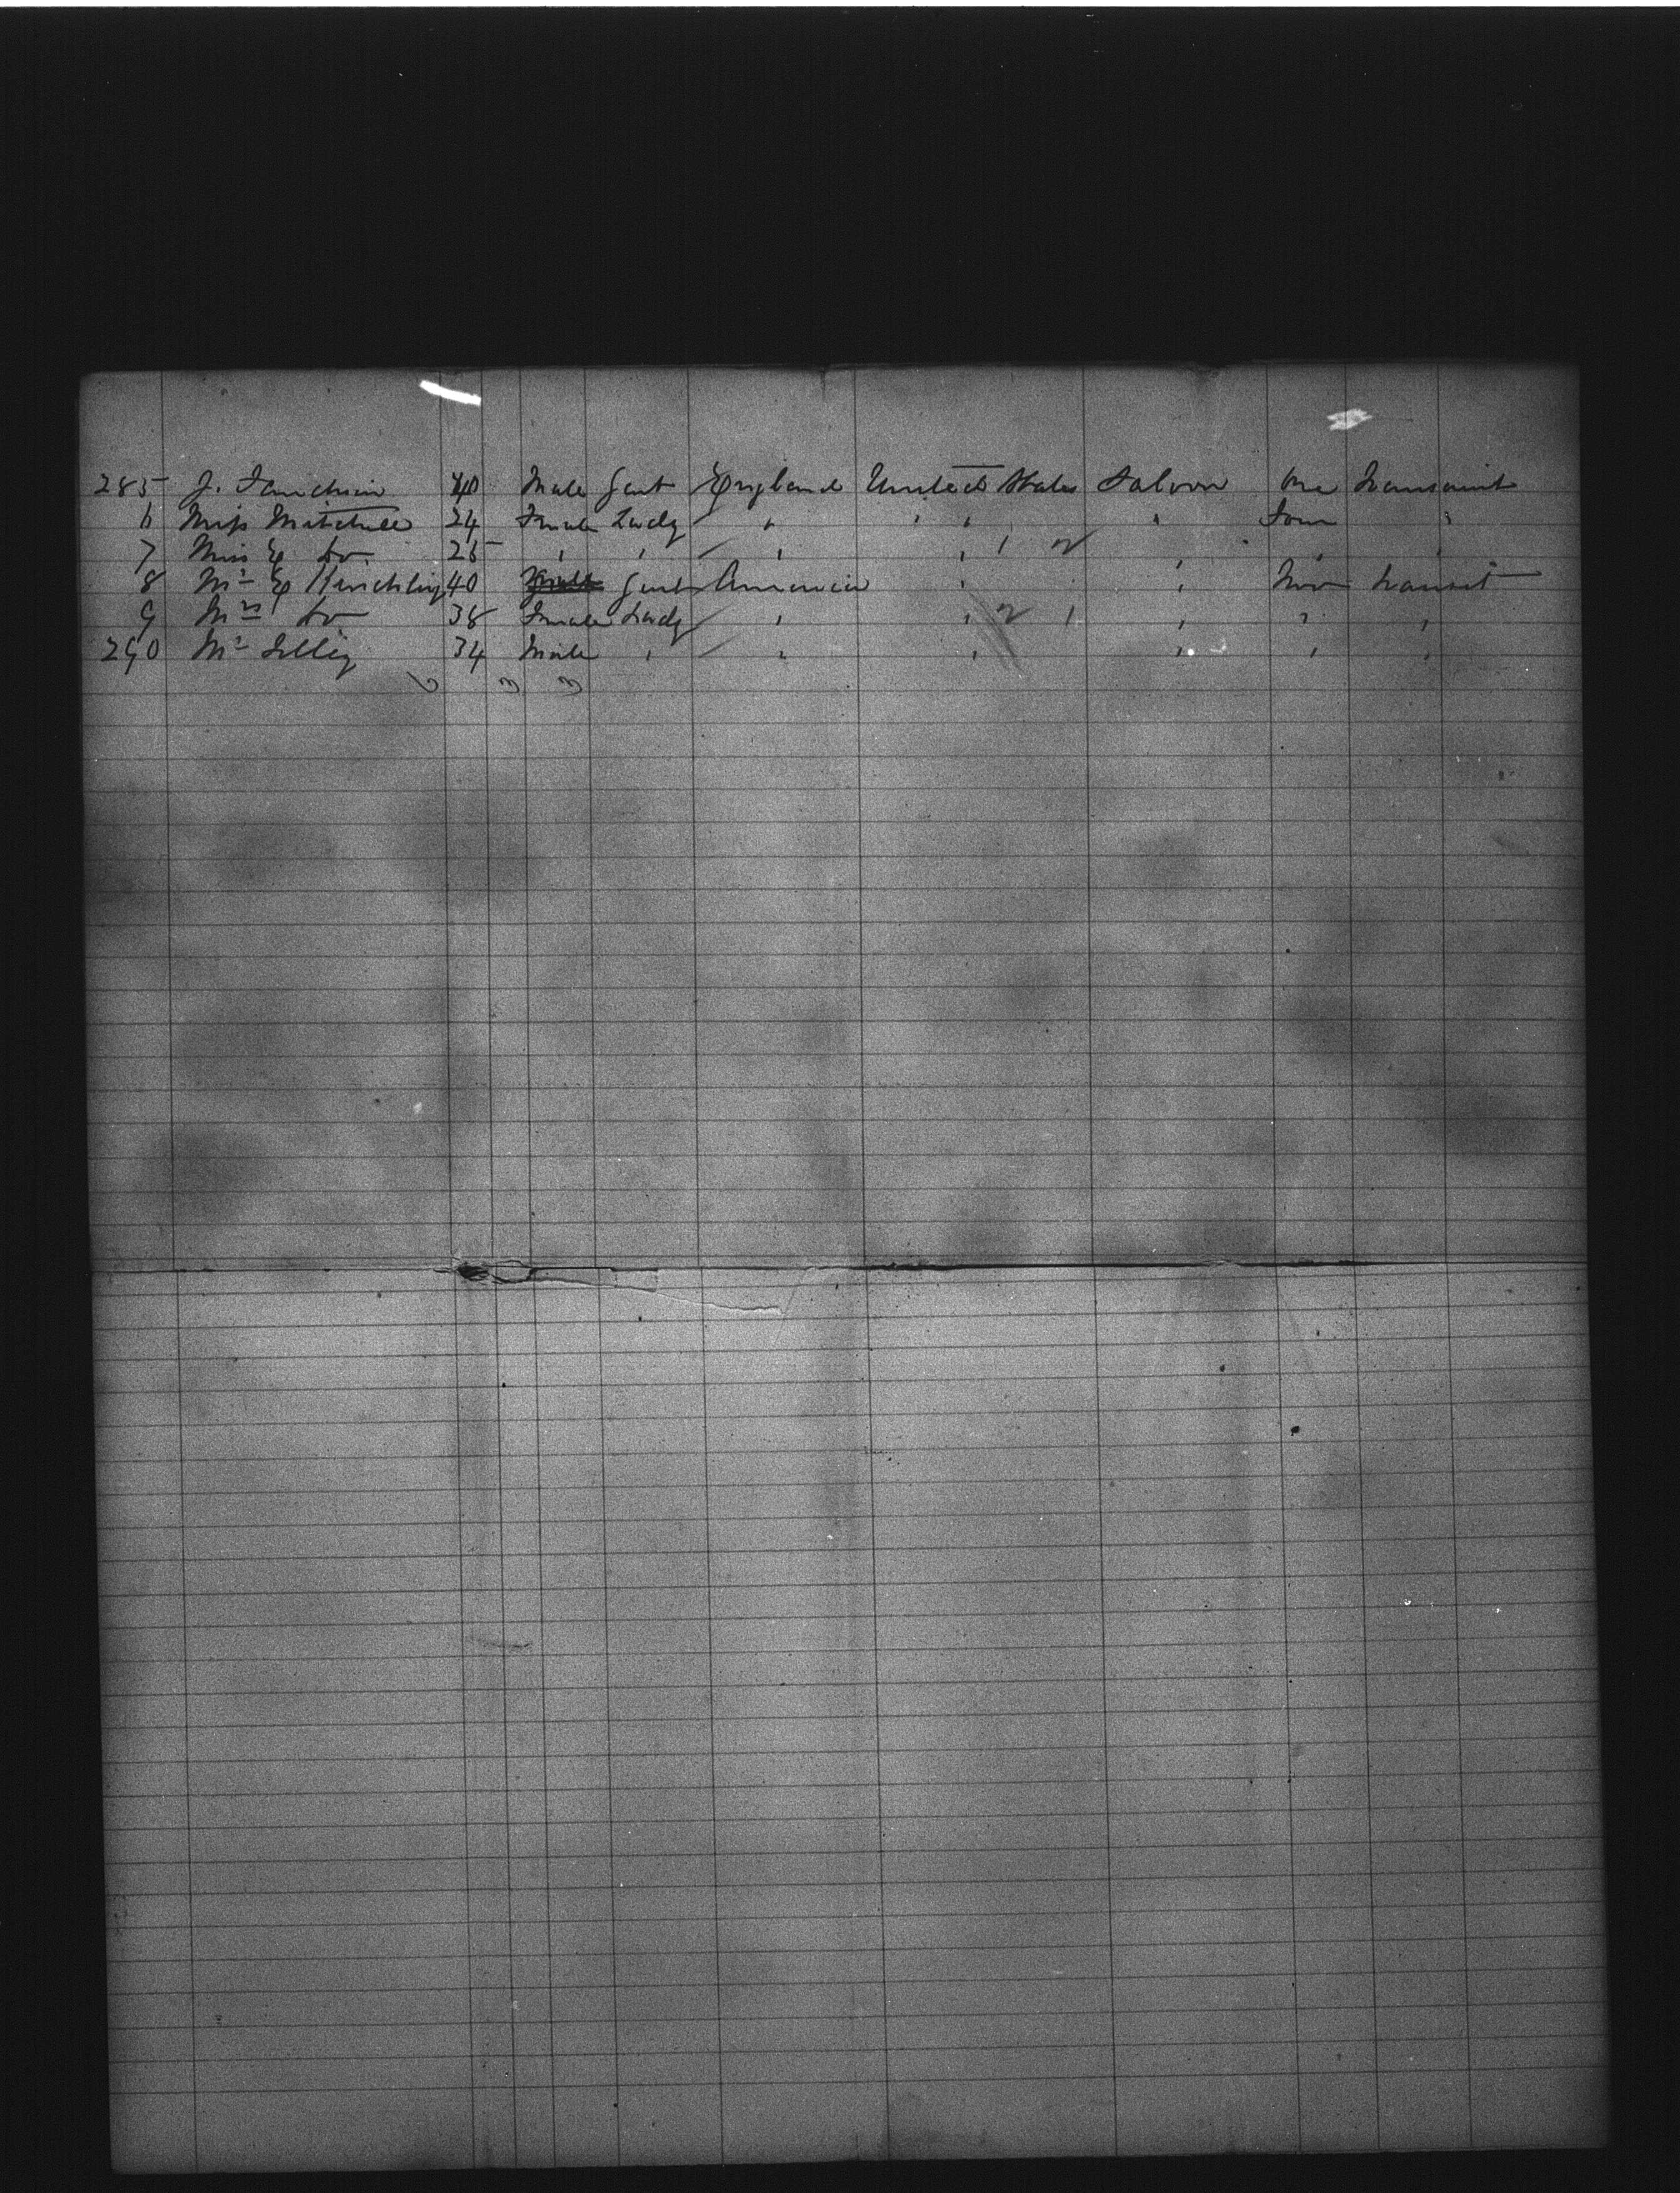 285 J. 40 Male Gent England United States Saloon One Transient
6 Miss Mitchell 24 Female Lady " " " " Four "
7 Miss E Do 25 " " " " 1 2 " " "
8 Mr E 40 Male Gent America " " Two Transit
9 Mrs Do 38 Female Lady " " 2 1 " " "
290 Mr 34 Male " " " " " "
6 3 3